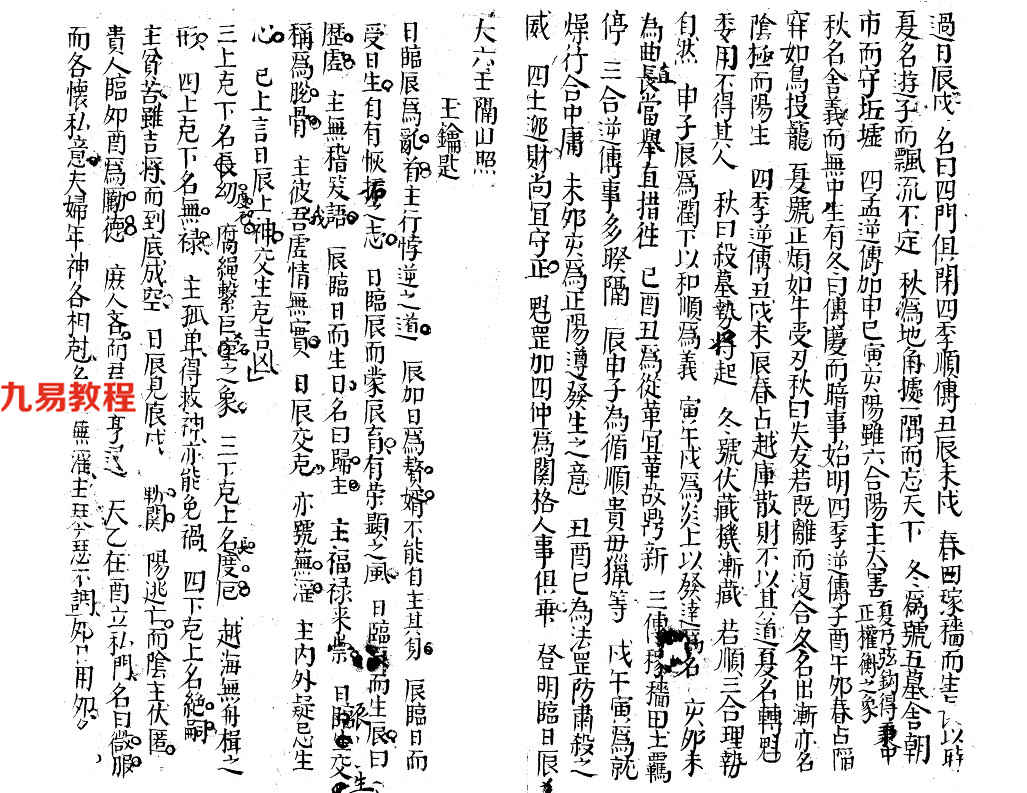 過日辰戌 名曰四門俱閉四季順傳丑辰未戌 春曰稼穡而生
夏名遊子而飄流不定 秋為地角據一隅而忘天下 冬為號五墓舍朝
市而守坵墟 四孟逆傳加申巳寅亥陽雖六合陽主大害 夏乃弦鈎得秉中正權衡之象
秋名舍義而無中生有冬曰傳慶而暗事始明四季逆傳子酉午夘春占陷
穽如鳥投籠 夏號正煩如牛受刃秋曰失友若既離而復合冬名出漸亦名
陰極而陽生 四季逆傳丑戌未辰春占越庫散財不以其道夏名轉魁
委用不得其人 秋曰殺墓勢將起 冬號伏藏機漸藏 若順三合理勢
自然 申子辰為潤下以和順為義 寅午戌為炎上以發達為名 亥夘未
為曲直長當舉直措徃 巳酉丑為從革宜革故鼎新 三傳稼穡田土羈
停 三合逆傳事多暌隔 辰申子為循順貴毋獵等 戌午寅為就
燥行合中庸 未夘亥為正陽遵發生之意 丑酉巳為法罡防肅殺之
威 四土逊財尚宜守正 魁罡加四仲為関格人事俱乖 登明臨日辰
大六壬隔山照
玉鑰匙
日臨辰為亂首主行悖逆之道 辰加日為贅婿不能自主其身 辰臨日而
受日生 自有恢振之志 日臨辰而蒙辰育有荣顯之風 日臨而生辰曰
歷虛 主無稽发語 辰臨日而生日名曰歸主 主福禄来崇 日辰交
稱為脫骨 主彼吾虛情無實 日辰交克 亦號蕪滛 主内外疑忌生
心 已上言日辰上神交生克吉凶
三上克下名長幼 腐繩繫巨室之象 三下克上名度厄 越海無舟楫之
形 四上克下名無禄 主孤单得救神亦能免禍 四下克上名絕嗣
主貧苦雖吉將而到底成空 日辰見辰戌 勅関 陽逃亡而陰主伏匿
貴人臨夘酉為勵德 庶人吝而君 亨 天乙在酉立私門 名曰微服
而各懷私意 夫婦年神各相尅名 無滛主琴瑟不調 用夘
九易教程